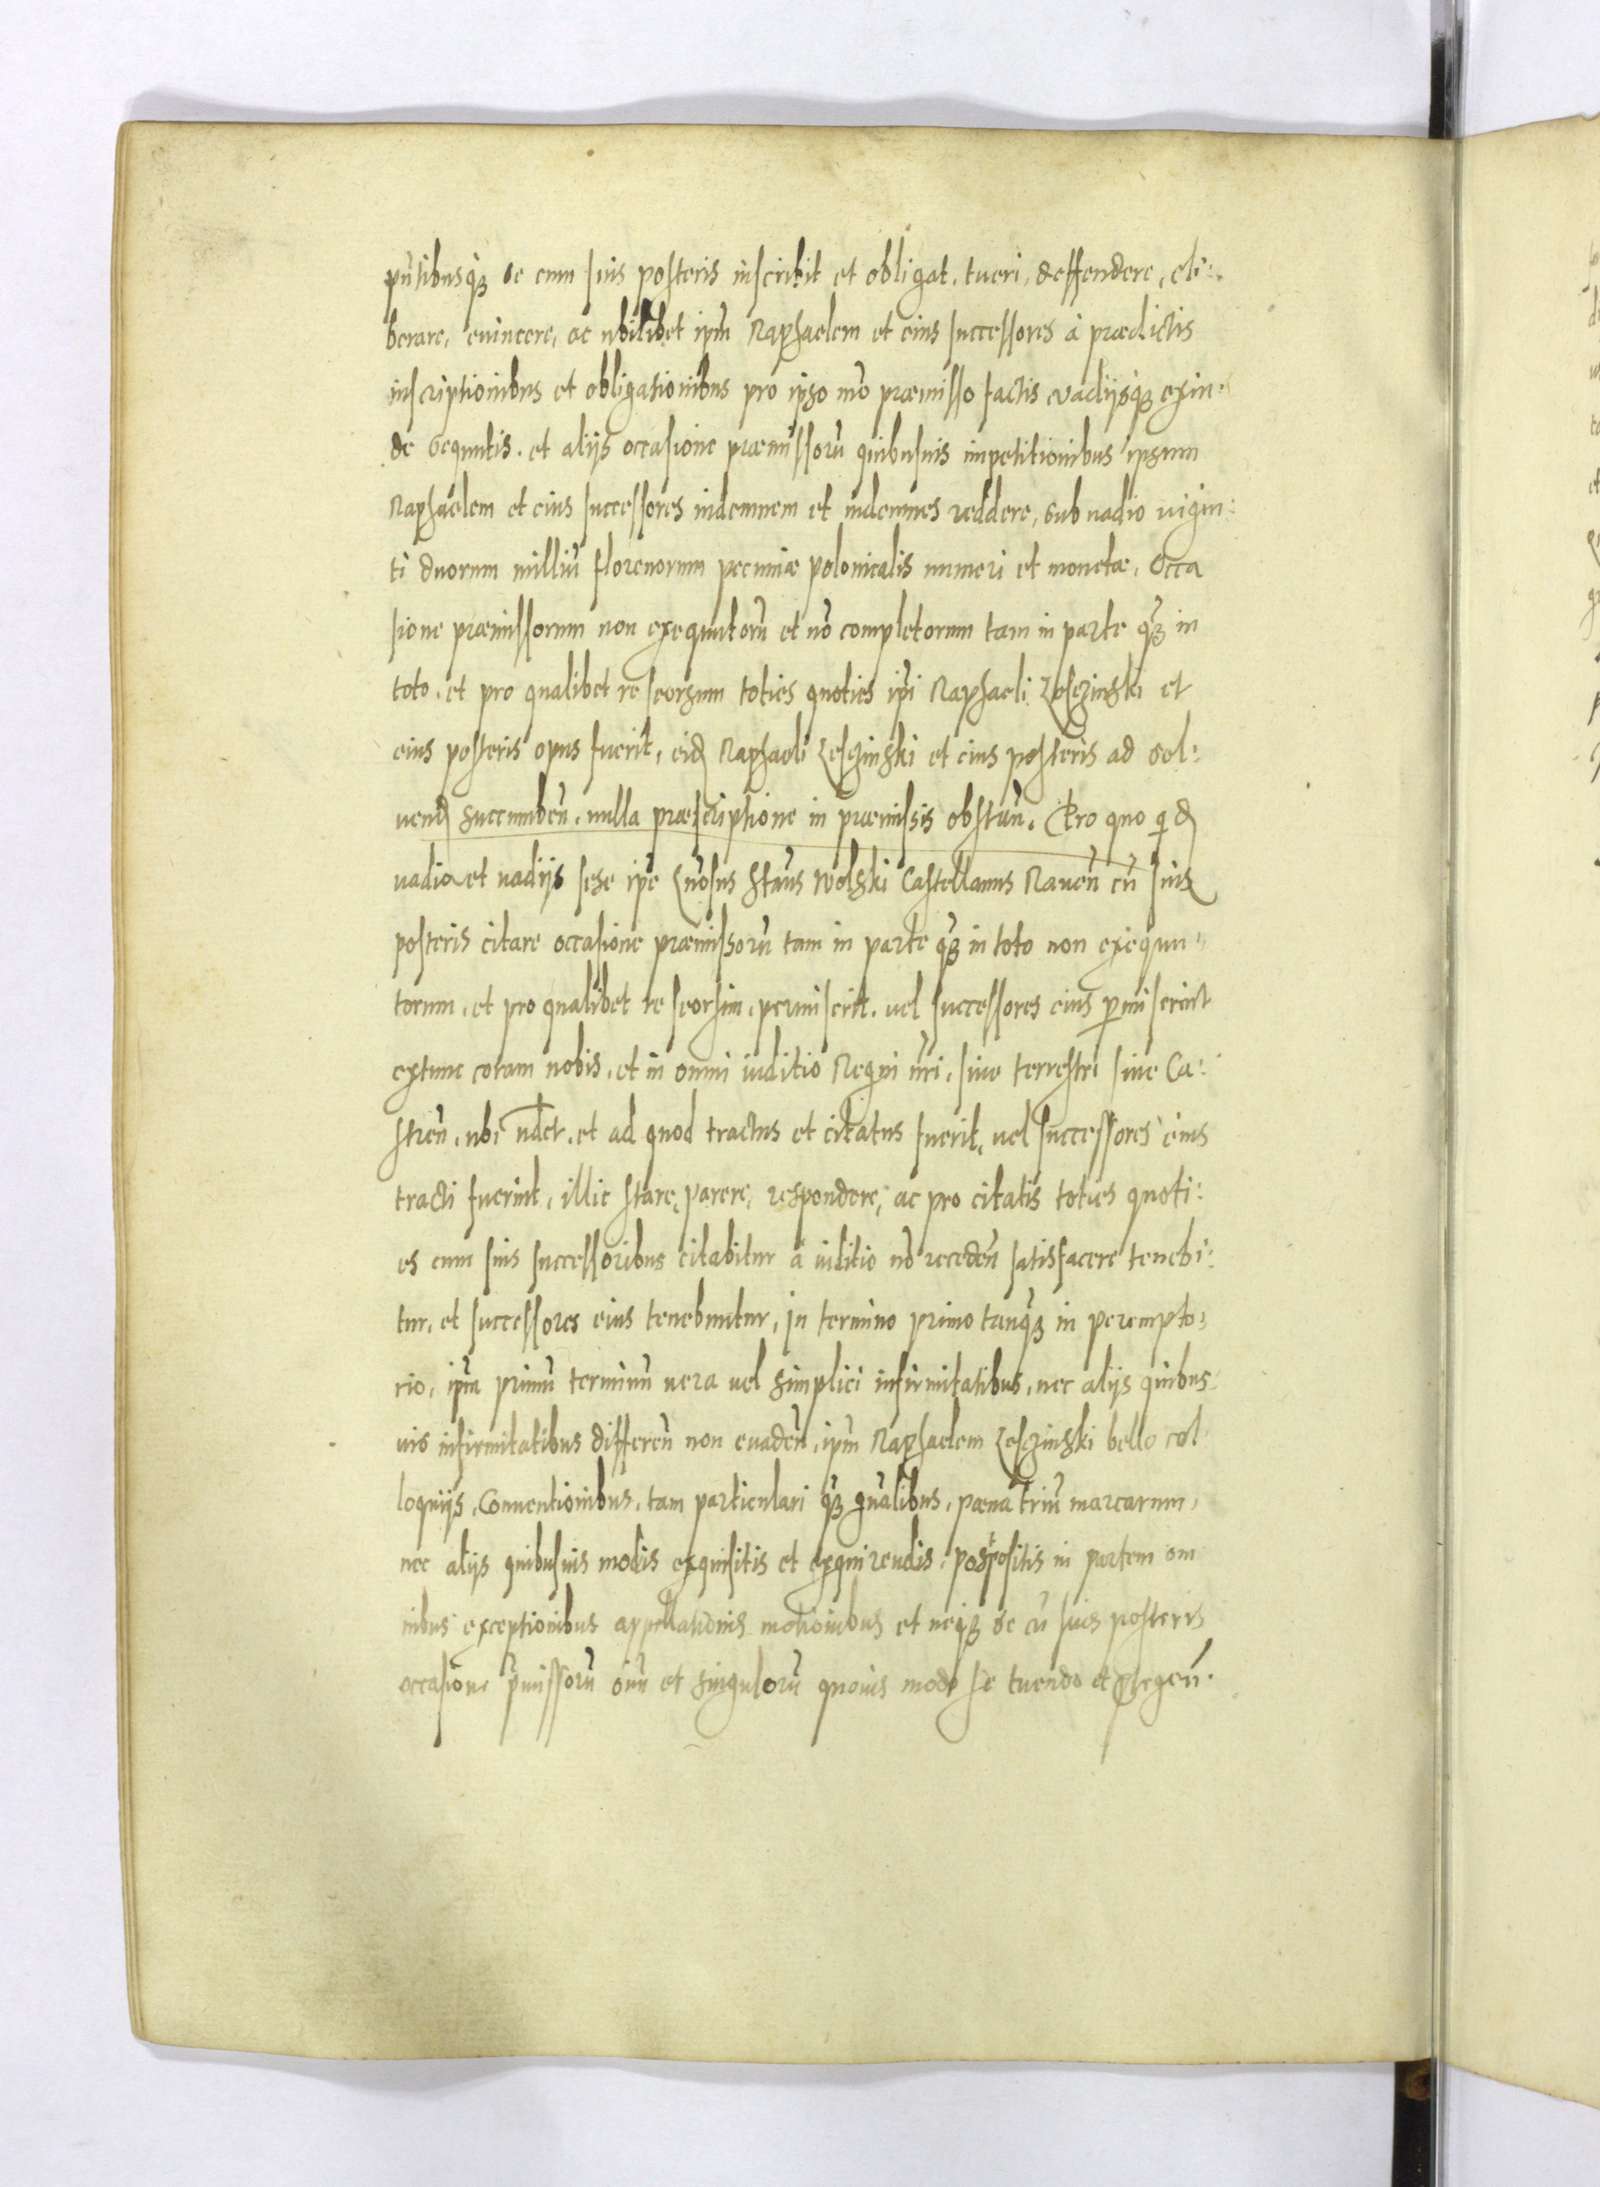 pñtibusq3 se cum suis posteris inscribit et obligat. tueri, deffendere, eli:
berare, euincere, ac ubilibet ipm̃ Raphaelem et eius successores à prædictis
inscriptionibus et obligationibus pro ipso mõ præmisso factis vadijsq3 exin:
de sequutis. et alijs occasione præmissorũ quibusuis impetitionibus ipsum
Raphaelem et eius successores indemnem et indemnes reddere, sub uadio uigin:
ti duorum milliũ florenorum pecuniæ polonicalis numeri et monetæ. Occa
sione præmissorum non exequutorũ et nõ completorum tam in parte q̃3 in
toto. et pro qualibet re seorsum toties quoties ip̃i Raphaeli Lesczinski et
eius posteris opus fuerit, eid Raphaeli Lesczinski et eius posteris ad sol:
uend succumben̄. nulla præscriptione in præmissis obstan̄. Pro quo q̃d
uadio et uadijs sese ip̃e Gñosus Stãus Wolski Castellanus Rauen̄ cũ suis
posteris citare occasione præmissorũ tam in parte q̃3 in toto non exequu:
torum. et pro qualibet re seorsim. permiserit. uel successores eius p̱miserint
extunc coram nobis. et in omni iuditio Regni nr̃i, siue terrestri siue Ca:
stren̄. ubi ud̃et. et ad quod tractus et citatus fuerit, uel successores eius
tracti fuerint, illic stare, parere, respondere, ac pro citatis toties quoti:
es cum suis successoribus citabitur à iuditio nõ receden̄ satisfacere tenebi:
tur. et successores eius tenebuntur, in termino primo tanq̃3 in perempto:
rio, ipm̃ primũ terminũ uera uel simplici infirmitatibus, nec alijs quibus
uis infirmitatibus differen̄ non euaden̄, ipm̃ Raphaelem Lesczinski bello col
loquijs, Conuentionibus, tam particulari q̃3 gñalibus, pæna triũ marcarum,
nec alijs quibusuis modis exquisitis et exquirendis. postpositis in partem om
nibus exceptionibus appellationis motionibus et neq3 se cũ suis posteris
occasione p̃missorũ oĩũ et singulorũ quouis modo se tuendo et ꝓtegen̄.